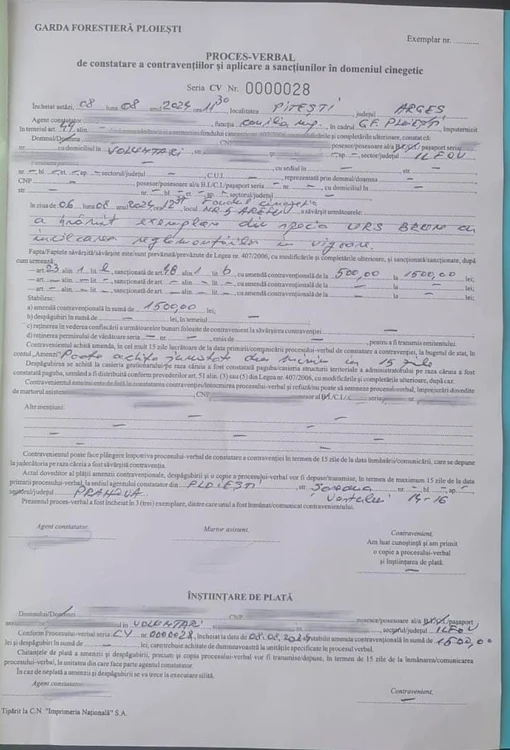 GARDA FORESTIERĂ PLOIEȘTI
Exemplar nr. ...........
PROCES-VERBAL
de constatare a contravențiilor și aplicare a sancțiunilor în domeniul cinegetic
Seria CV Nr. 0000028
Încheiat astăzi, 08 luna 08 anul 2024 11 30 localitatea PITEȘTI județul ARGEȘ
Agent constatator funcția consilier sup., în cadrul G.F. PLOIEȘTI, împuternicit
în temeiul art. 44 alin. – fondului cinegetic nr. 407/2006, cu modificările și completările ulterioare, constat că:
Domnul/Doamna posesor/posesoare al/a B.I./C.I./pașaport seria
nr. cu domiciliul în VOLUNTARI, str. ap. – , sector/județul ILFOV
cu sediul în – str –
nr. – bl. – sc. – ap. – sector/județul – C.U.I. – , reprezentată prin domnul/doamna –
CNP – , posesor/posesoare al/a B.I./C.I./pașaport seria – nr. – , cu domiciliul în –
str. – nr. – bl. – sc. – ap. – , sectorul/județul –
în ziua de 06 luna 08 anul 2024 locul Fondul cinegetic
NR 5 a săvârșit următoarele:
a hrănit exemplare din specia URS BRUN cu
încălcarea reglementărilor în vigoare.
Fapta/Faptele săvârșită/săvârșite este/sunt prevăzută/prevăzute de Legea nr. 407/2006, cu modificările și completările ulterioare, și sancționată/sancționate, după
cum urmează:
– art. 23 alin. 1 lit. l, sancționată de art. 48 alin. 1 lit. b, cu amendă contravențională de la 500,00 la 1500,00 lei;
– art. – alin. – lit. – , sancționată de art. – alin. – lit. – , cu amendă contravențională de la – la – lei;
– art. – alin. – lit. – , sancționată de art. – alin. – lit. – , cu amendă contravențională de la – la – lei.
Stabilesc:
a) amendă contravențională în sumă de 1500,00 lei;
b) despăgubiri în sumă de – lei, în temeiul –
c) reținerea în vederea confiscării a următoarelor bunuri folosite de contravenient la săvârșirea contravenției –
d) reținerea permisului de vânătoare seria – nr. – , emis de – , pentru a fi transmis emitentului.
Contravenientul achită amenda, în cel mult 15 zile lucrătoare de la data primirii/comunicării procesului-verbal de constatare a contravenției, la bugetul de stat, în
contul „Amenzi” Poate achita jumătate din minim în 15 zile
Despăgubirea se achită la casieria gestionarului/pe raza căruia a fost constatată paguba/casieria structurii teritoriale a administratorului pe raza căruia a fost
constatată paguba, urmând a fi distribuită conform prevederilor art. 51 alin. (3) sau (5) din Legea nr. 407/2006, cu modificările și completările ulterioare, după caz.
Contravenientul este/nu este de față la constatarea contravenției/întocmirea procesului-verbal și refuză/nu poate să semneze procesul-verbal, împrejurări dovedite
de martorul asistent CNP posesor al B.I./C.I. seria nr.
Alte mențiuni:
Contravenientul poate face plângere împotriva procesului-verbal de constatare a contravenției în termen de 15 zile de la data înmânării/comunicării, care se depune
la judecătoria pe raza căreia a fost săvârșită contravenția.
Actul doveditor al plății amenzii contravenționale, despăgubirii și o copie a procesului-verbal vor fi depuse/transmise, în termen de maximum 15 zile de la data
primirii procesului-verbal, la sediul agentului constatator din PLOIEȘTI, str. Șoseaua nr. – bl. – ap. –
sectorul/județul PRAHOVA Vestului 14-16
Prezentul proces-verbal a fost încheiat în 3 (trei) exemplare, dintre care unul a fost înmânat/comunicat contravenientului.
Agent constatator,
Martor asistent,
Contravenient,
Am luat cunoștință și am primit
o copie a procesului-verbal
și înștiințarea de plată.
ÎNȘTIINȚARE DE PLATĂ
Domnului/Doamnei CNP posesor/posesoare al/a B.I./C.I./pașaport
domiciliul în VOLUNTARI sectorul/județul ILFOV
Conform Procesului-verbal seria CV nr. 0000028, încheiat la data de 08.08.2024 stabilit amendă contravențională în sumă de 1500,00
lei și despăgubiri în sumă de – lei, care trebuie achitate de dumneavoastră la unitățile specificate în procesul-verbal.
Chitanțele de plată a amenzii și despăgubirii, precum și copia procesului-verbal vor fi transmise/depuse, în termen de 15 zile de la înmânarea/comunicarea
procesului-verbal, la unitatea din care face parte agentul constatator.
În caz de neplată a amenzii și despăgubirii se va trece la executare silită.
Agent constatator,
Contravenient,
Tipărit la C.N. "Imprimeria Națională" S.A.